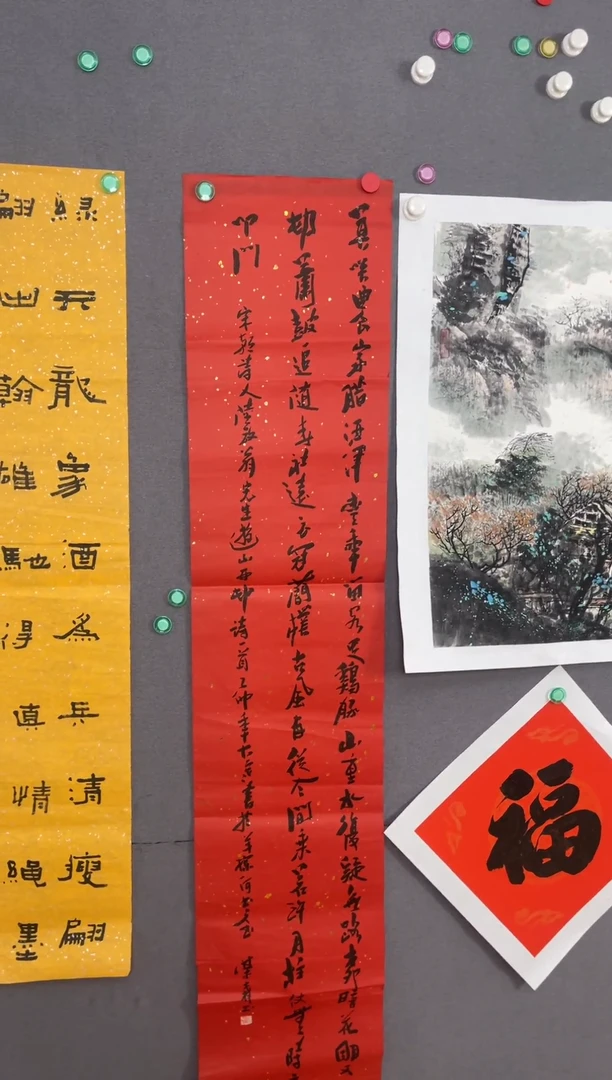 綠天龍象酒為兵清瘦翩
翩出翰雄馳得真情繩墨
莫笑農家臘酒渾豐年留客足雞豚山重水復疑無路柳暗花明又
邨簫鼓追隨春社近衣冠簡樸古風存從今閒乘若許月拄杖無時
叩門
宋朝詩人陸放翁先生遊山西邨詩一首
福